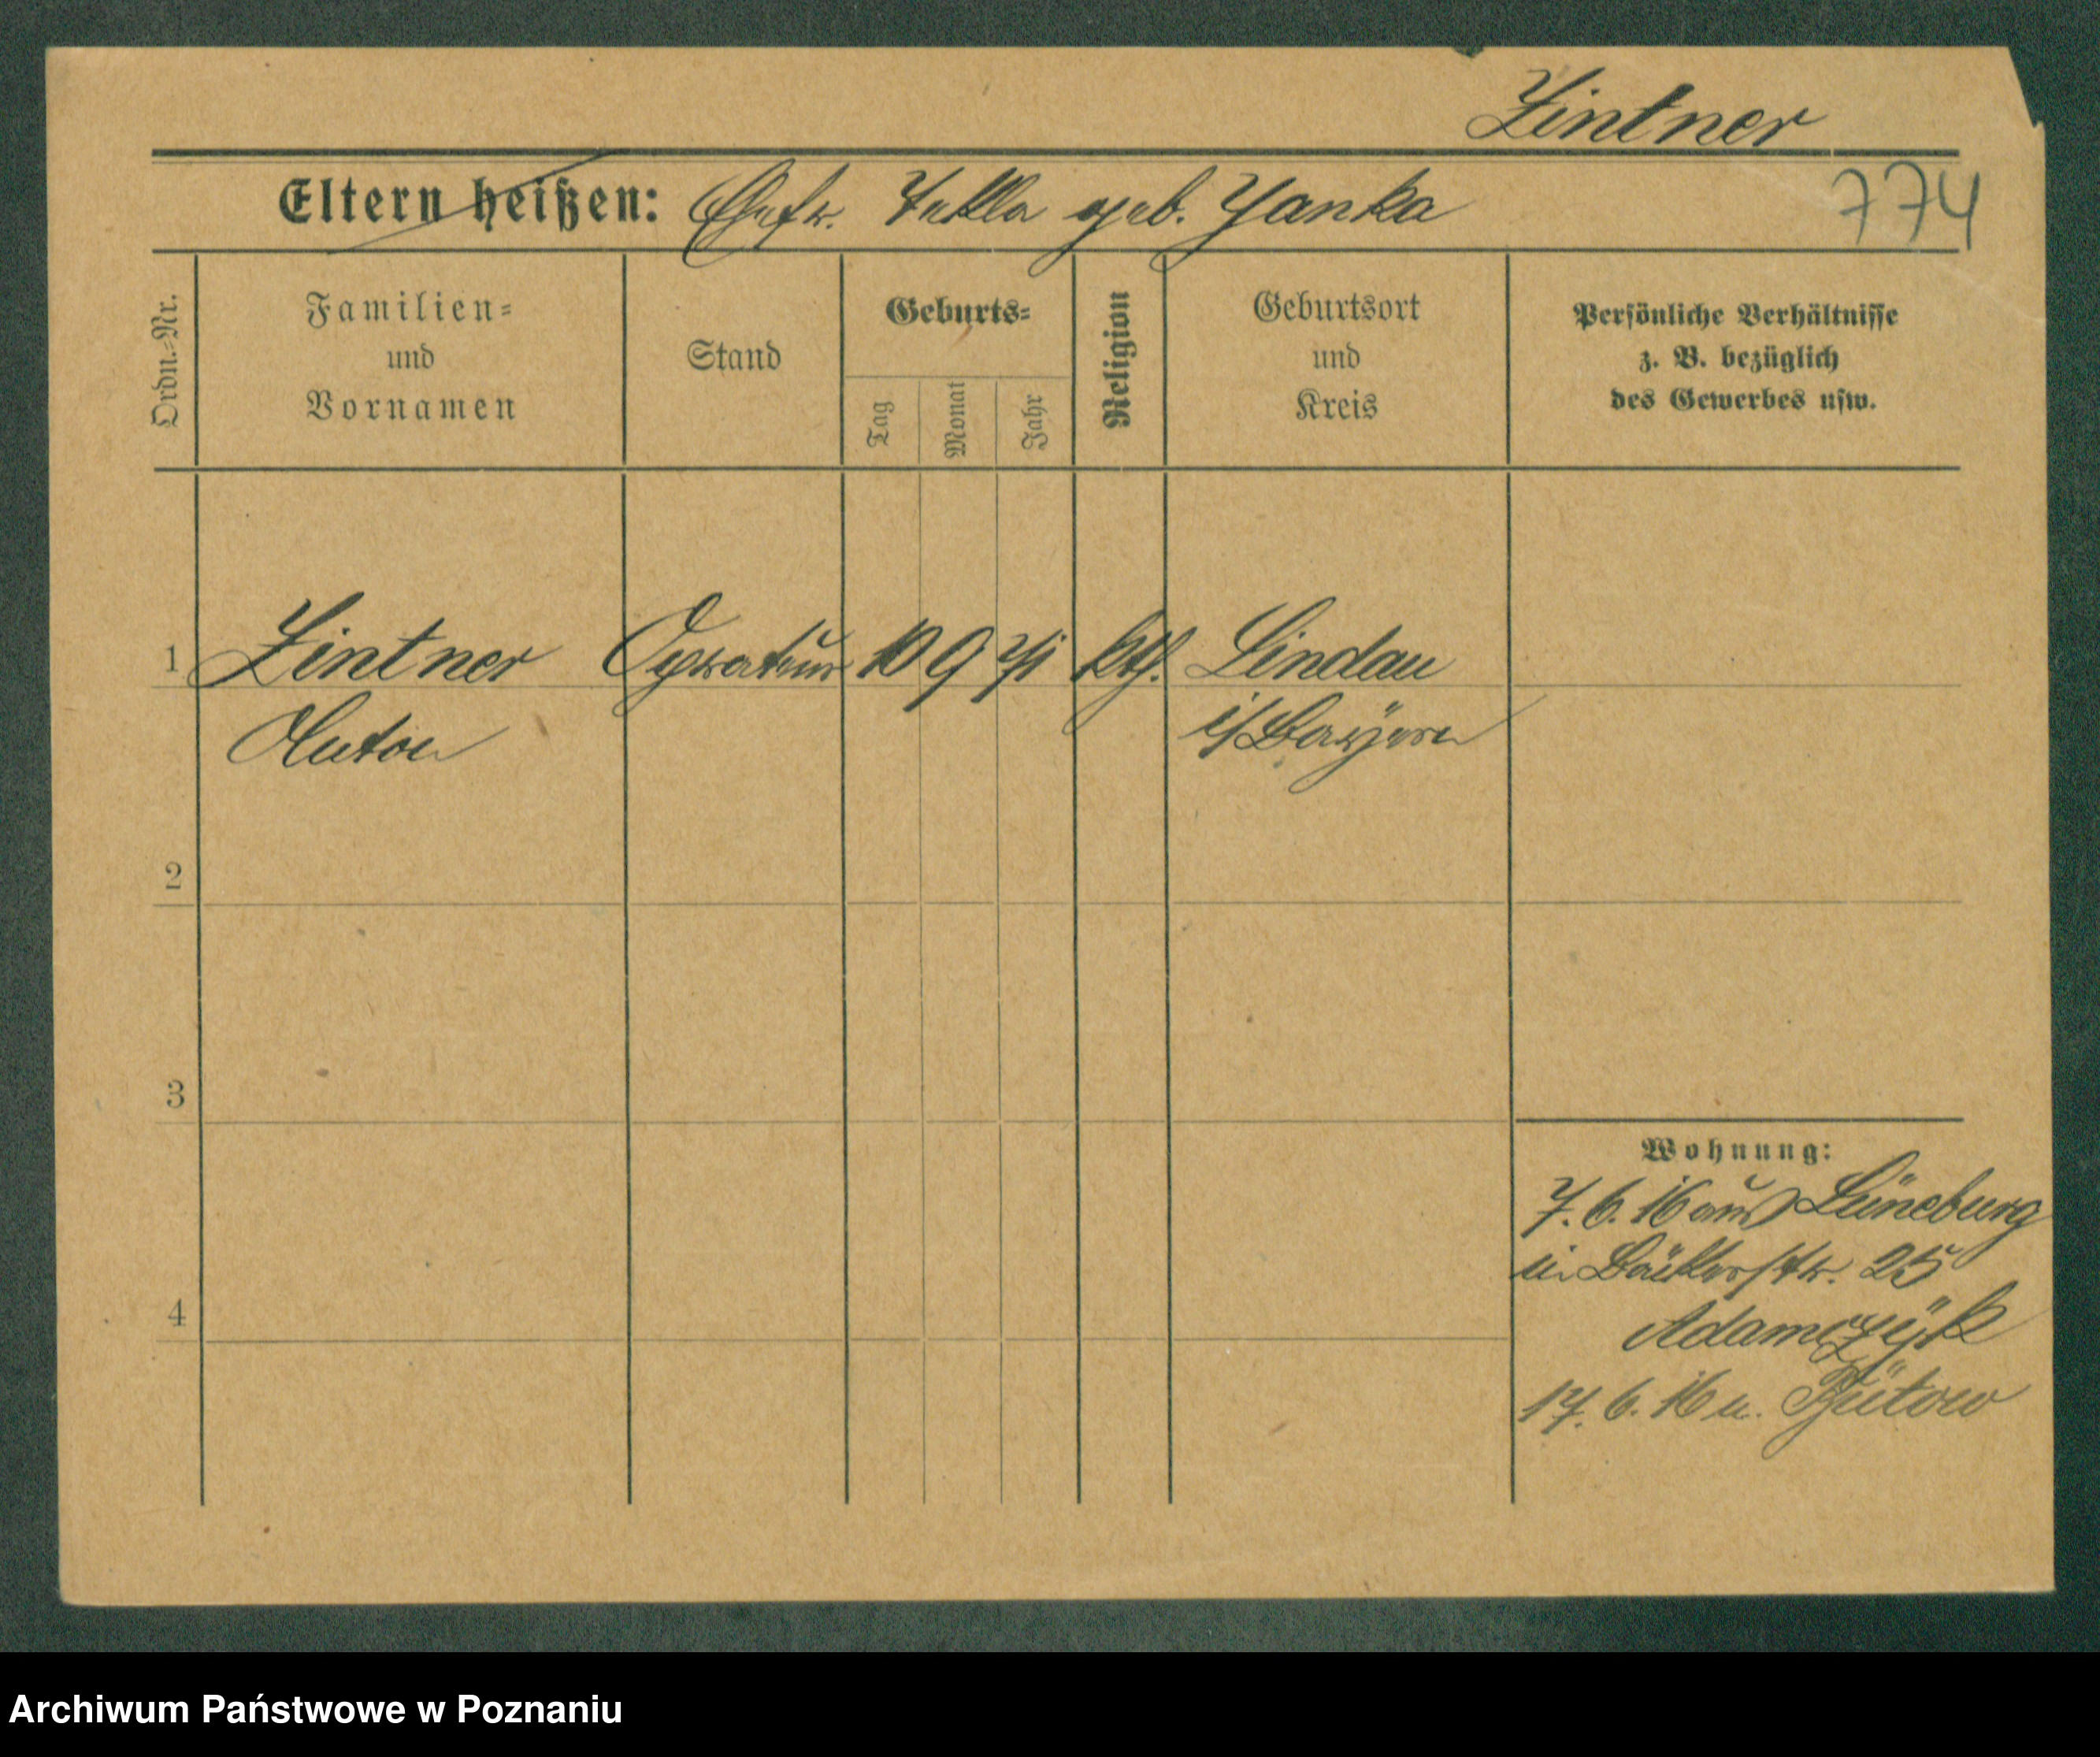 Zintner
Eltern heißen: Ehefr. Tekla geb. Yanka
774
Ordn.-Nr.
Familien-
und
Vornamen
Stand
Geburts-
Tag
Monat
Jahr
Religion
Geburtsort
und
Kreis
Persönliche Verhältnisse
z. B. bezüglich
des Gewerbes usw.
1 Zintner Operateur 10 9 71 kth. Lindau
Anton i/Bayern
2
3
4
Wohnung:
7. 6. 16 aus Lüneburg
in Bäckerstr. 25
Adamczyk
17. 6. 16 n. Bütow
Archiwum Państwowe w Poznaniu